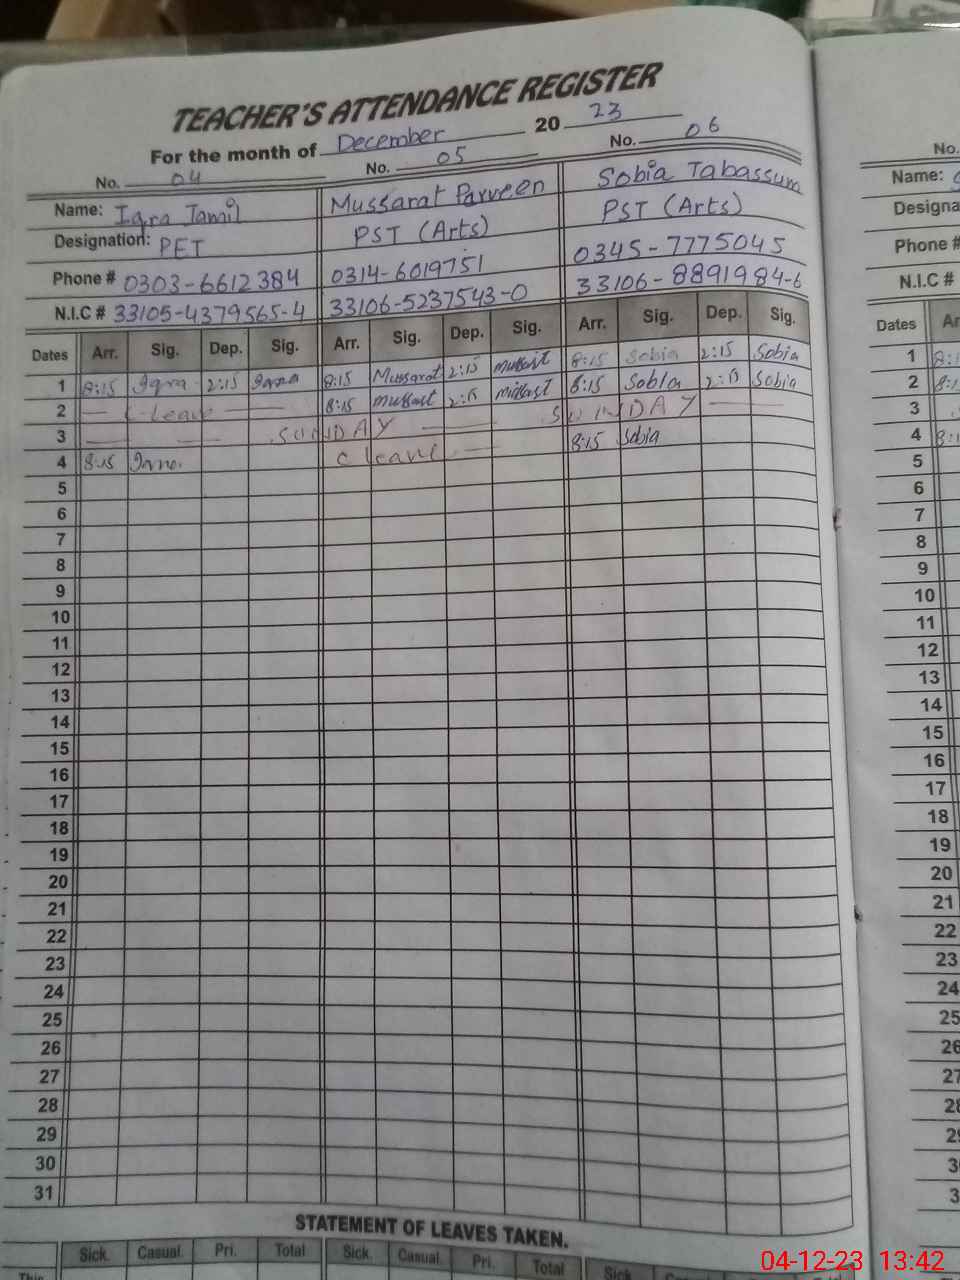 TEACHER'S ATTENDANCE REGISTER
For the month of December 2023
No. 04 No. 05 No. 06
Name: Iqra Jamil Mussarat Parveen Sobia Tabassum
Designation: PET PST (Arts) PST (Arts)
Phone # 0303-6612384 0314-6019751 0345-7775045
N.I.C # 33105-4379565-4 33106-5237543-0 33106-8891984-6
Dates Arr. Sig. Dep. Sig. Arr. Sig. Dep. Sig. Arr. Sig. Dep. Sig.
1 8:15 Iqra 2:15 Iqra 8:15 Mussarat 2:15 8:15 Sobia 2:15 Sobia
2 — C leave — 8:15 2:15 8:15 Sobia 2:15 Sobia
3 — — SUNDAY — — SUNDAY —
4 8:15 Iqra C leave — 8:15 Sobia
5
6
7
8
9
10
11
12
13
14
15
16
17
18
19
20
21
22
23
24
25
26
27
28
29
30
31
STATEMENT OF LEAVES TAKEN.
Sick. Casual. Pri. Total Sick. Casual. Pri. Total Sick.
This
No.
Name:
Designa
Phone #
N.I.C #
Dates Ar
1 8:
2 8:
3
4 8:
5
6
7
8
9
10
11
12
13
14
15
16
17
18
19
20
21
22
23
24
25
26
27
28
29
30
3
04-12-23 13:42